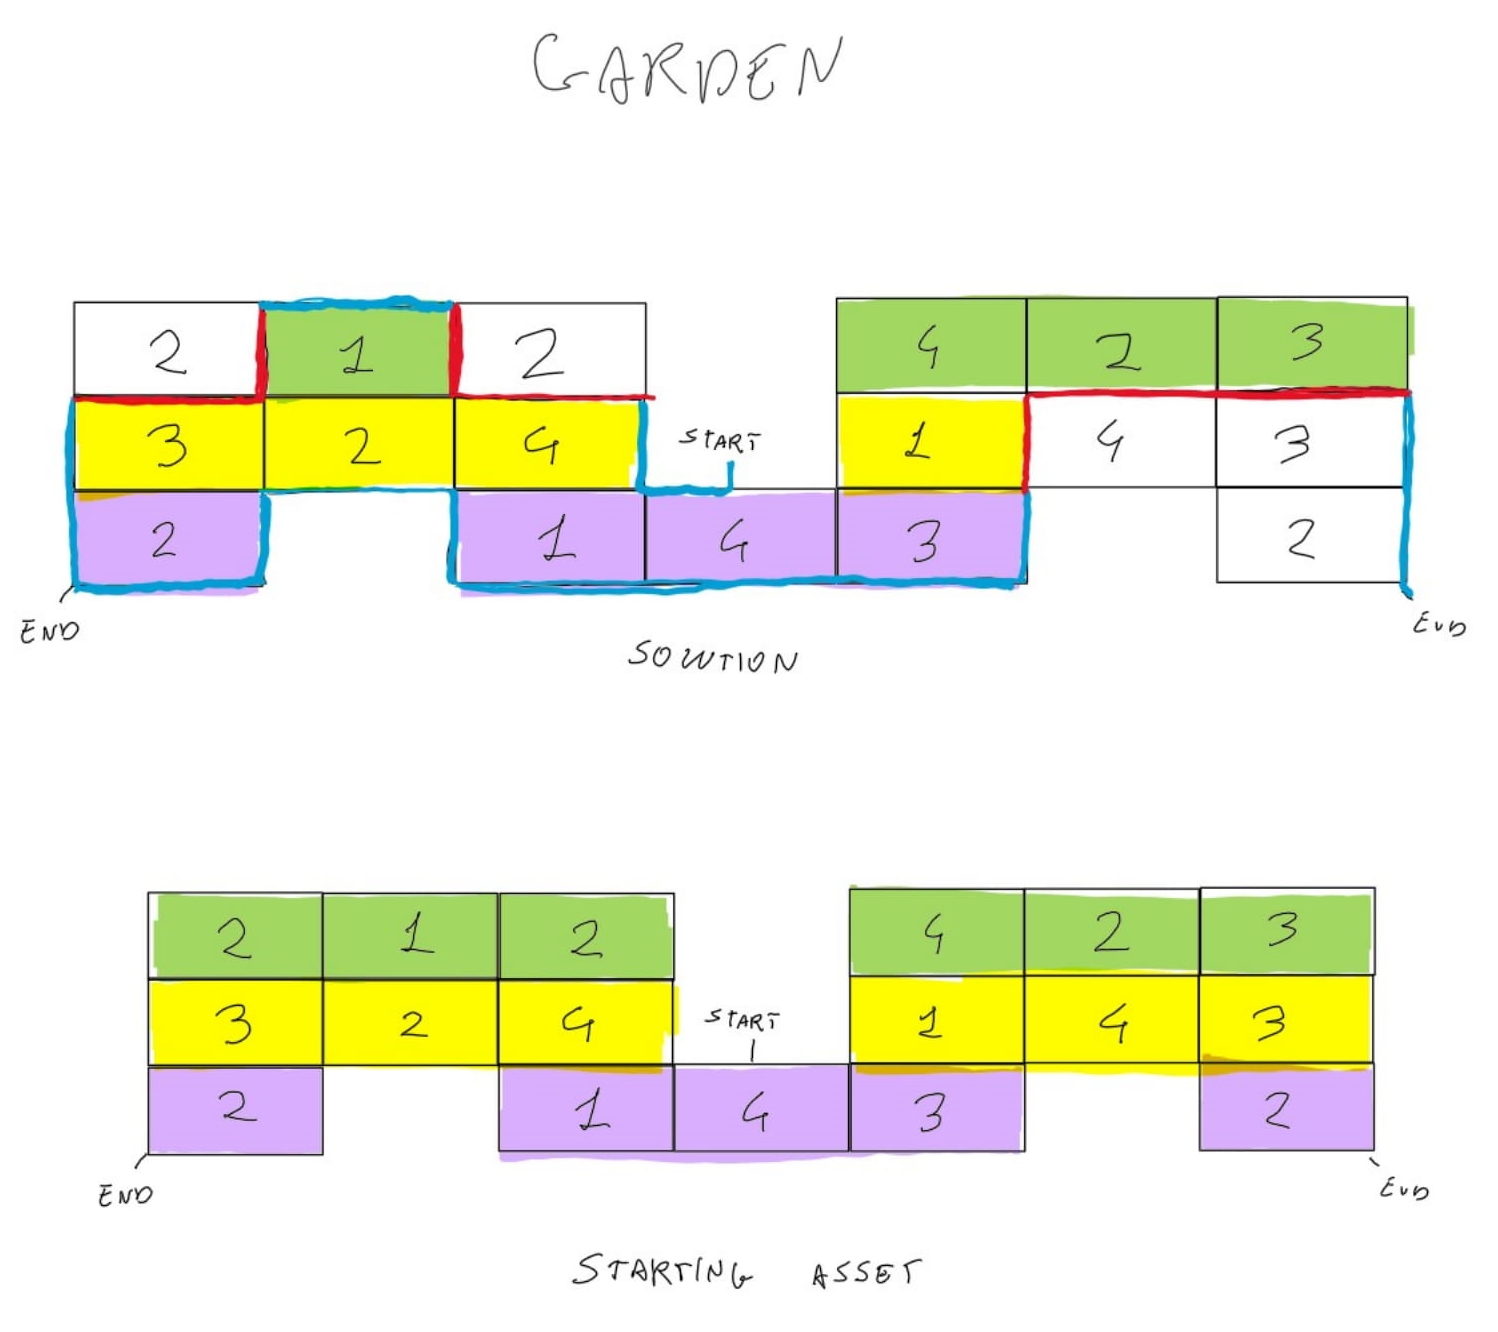 GARDEN
2 1 2 4 2 3
3 2 4 START 1 4 3
2 1 4 3 2
END END
SOLUTION
2 1 2 4 2 3
3 2 4 START 1 4 3
2 1 4 3 2
END END
STARTING ASSET